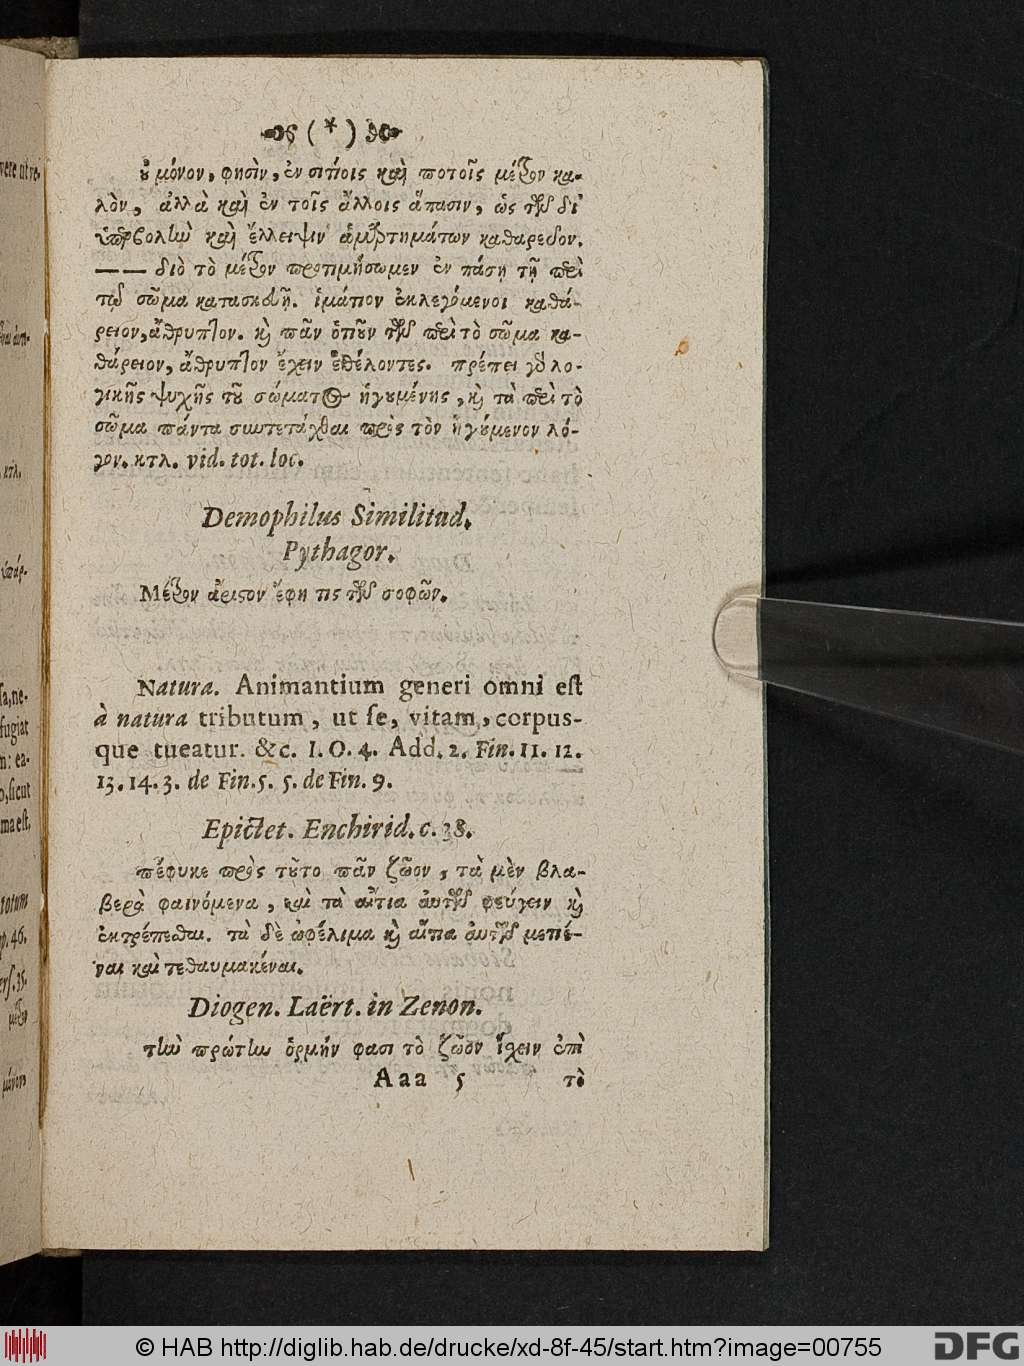 ( * )
οὐ μόνον, φησὶν, ἐν σιτίοις καὶ ποτοῖς μέτρον κα-
λὸν, ἀλλὰ καὶ ἐν τοῖς ἄλλοις ἅπασιν, ὡς τῶν δι'
ὑπερβολὴν καὶ ἔλλειψιν ἁμαρτημάτων καθαρεῦον.
—— διὸ τὸ μέτρον προτιμήσωμεν ἐν πάσῃ τῇ περὶ
τὸ σῶμα κατασκευῇ. ἱμάτιον ἐκλεγόμενοι καθά-
ρειον, ἄθρυπτον. καὶ πᾶν ὁτιοῦν τῶν περὶ τὸ σῶμα κα-
θάρειον, ἄθρυπτον ἔχειν ἐθέλοντες. πρέπει γὰρ λο-
γικῆς ψυχῆς τοῦ σώματος ἡγουμένης, καὶ τὰ περὶ τὸ
σῶμα πάντα συντετάχθαι πρὸς τὸν ἡγούμενον λό-
γον. κτλ. vid. tot. loc.
Demophilus Similitud.
Pythagor.
Μέτρον ἄριστον ἔφη τις τῶν σοφῶν.
Natura. Animantium generi omni est
à natura tributum, ut se, vitam, corpus-
que tueatur. &c. I. O. 4. Add. 2. Fin. 11. 12.
13. 14. 3. de Fin. 5. 5. de Fin. 9.
Epictet. Enchirid. c. 38.
πέφυκε πρὸς τοῦτο πᾶν ζῶον, τὰ μὲν βλα-
βερὰ φαινόμενα, καὶ τὰ αἴτια αὐτῶν φεύγειν καὶ
ἐκτρέπεσθαι. τὰ δὲ ὠφέλιμα καὶ αἴτια αὐτῶν μετιέ-
ναι καὶ τεθαυμακέναι.
Diogen. Laërt. in Zenon.
τὴν πρώτην ὁρμήν φασι τὸ ζῶον ἴσχειν ἐπὶ
Aaa 5 τὸ
© HAB http://diglib.hab.de/drucke/xd-8f-45/start.htm?image=00755
DFG